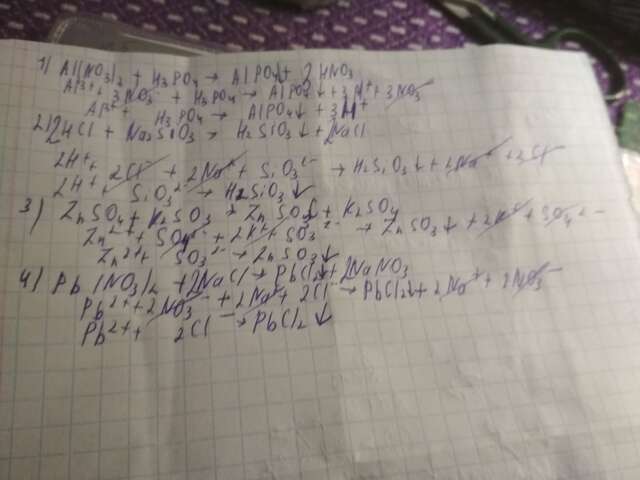 1) Al(NO3)2 + H3PO4 → AlPO4↓ + 3HNO3
Al3+ + 3NO3- + H3PO4 → AlPO4↓ + 3H+ + 3NO3-
Al3+ H3PO4 → AlPO4↓ + 3H+
2) 2HCl + Na2SiO3 → H2SiO3↓ + 2NaCl
2H+ + 2Cl- + 2Na+ + SiO3 2- → H2SiO3↓ + 2Na+ + 2Cl-
2H+ + SiO3 2- → H2SiO3↓
3) ZnSO4 + K2SO3 → ZnSO3↓ + K2SO4
Zn2+ + SO4 2- + 2K+ + SO3 2- → ZnSO3↓ + 2K+ + SO4 2-
Zn2+ + SO3 2- → ZnSO3↓
4) Pb(NO3)2 + 2NaCl → PbCl2↓ + 2NaNO3
Pb2+ + 2NO3- + 2Na+ + 2Cl- → PbCl2↓ + 2Na+ + 2NO3-
Pb2+ + 2Cl- → PbCl2↓